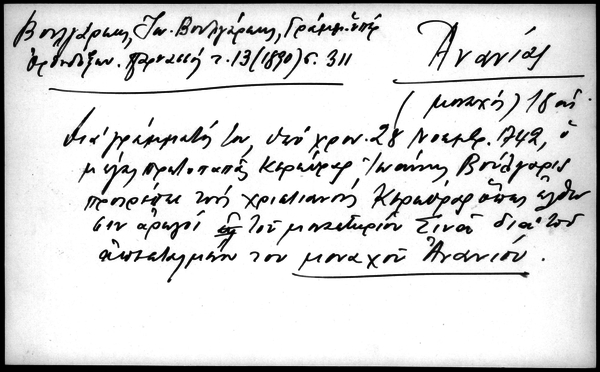 Βουλγάρεως, Ἰω. Βουλγάρεως, Γράμμ. ὑπὲρ
Ὀρθοδόξων. Παρνασσός τ. 13 (1890) σ. 311
Ἀνανίας
(μοναχός) 18 αἰ.
Διὰ γράμματός του, ὑπὸ χρον. 28 Νοεμβρ. 1742, ὁ
μέγας πρωτοπαπᾶς Κερκύρας Ἰωάννης Βούλγαρις
προτρέπει τοὺς χριστιανοὺς Κερκύρας ὅπως ἔλθουν
ἀρωγοὶ τοῦ μοναστηρίου Σινᾶ διὰ τοῦ
ἀπεσταλμένου του μοναχοῦ Ἀνανίου.